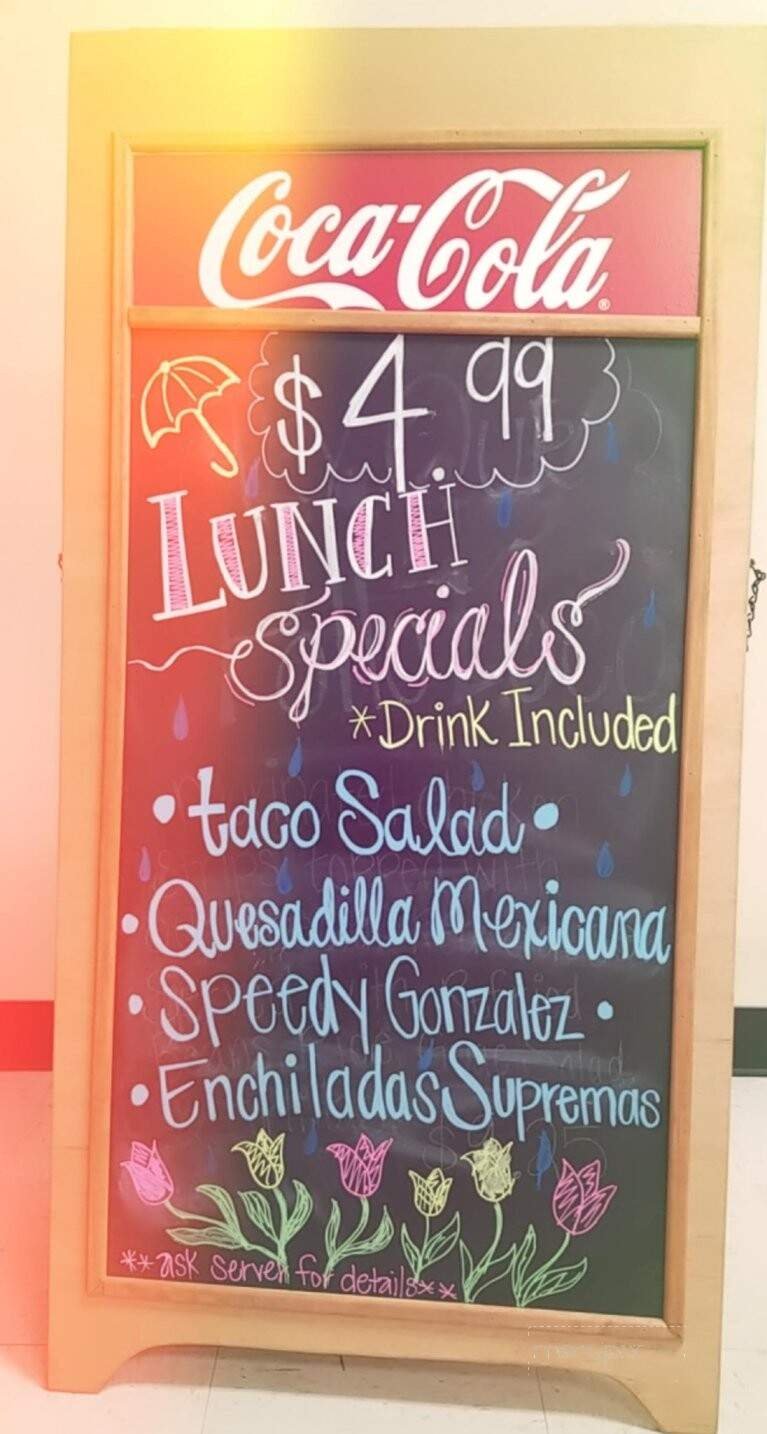 Coca-Cola®
$4.99
LUNCH
Specials
*Drink Included
• taco Salad •
• Quesadilla Mexicana
• Speedy Gonzalez •
• Enchiladas Supremas
**ask server for details**